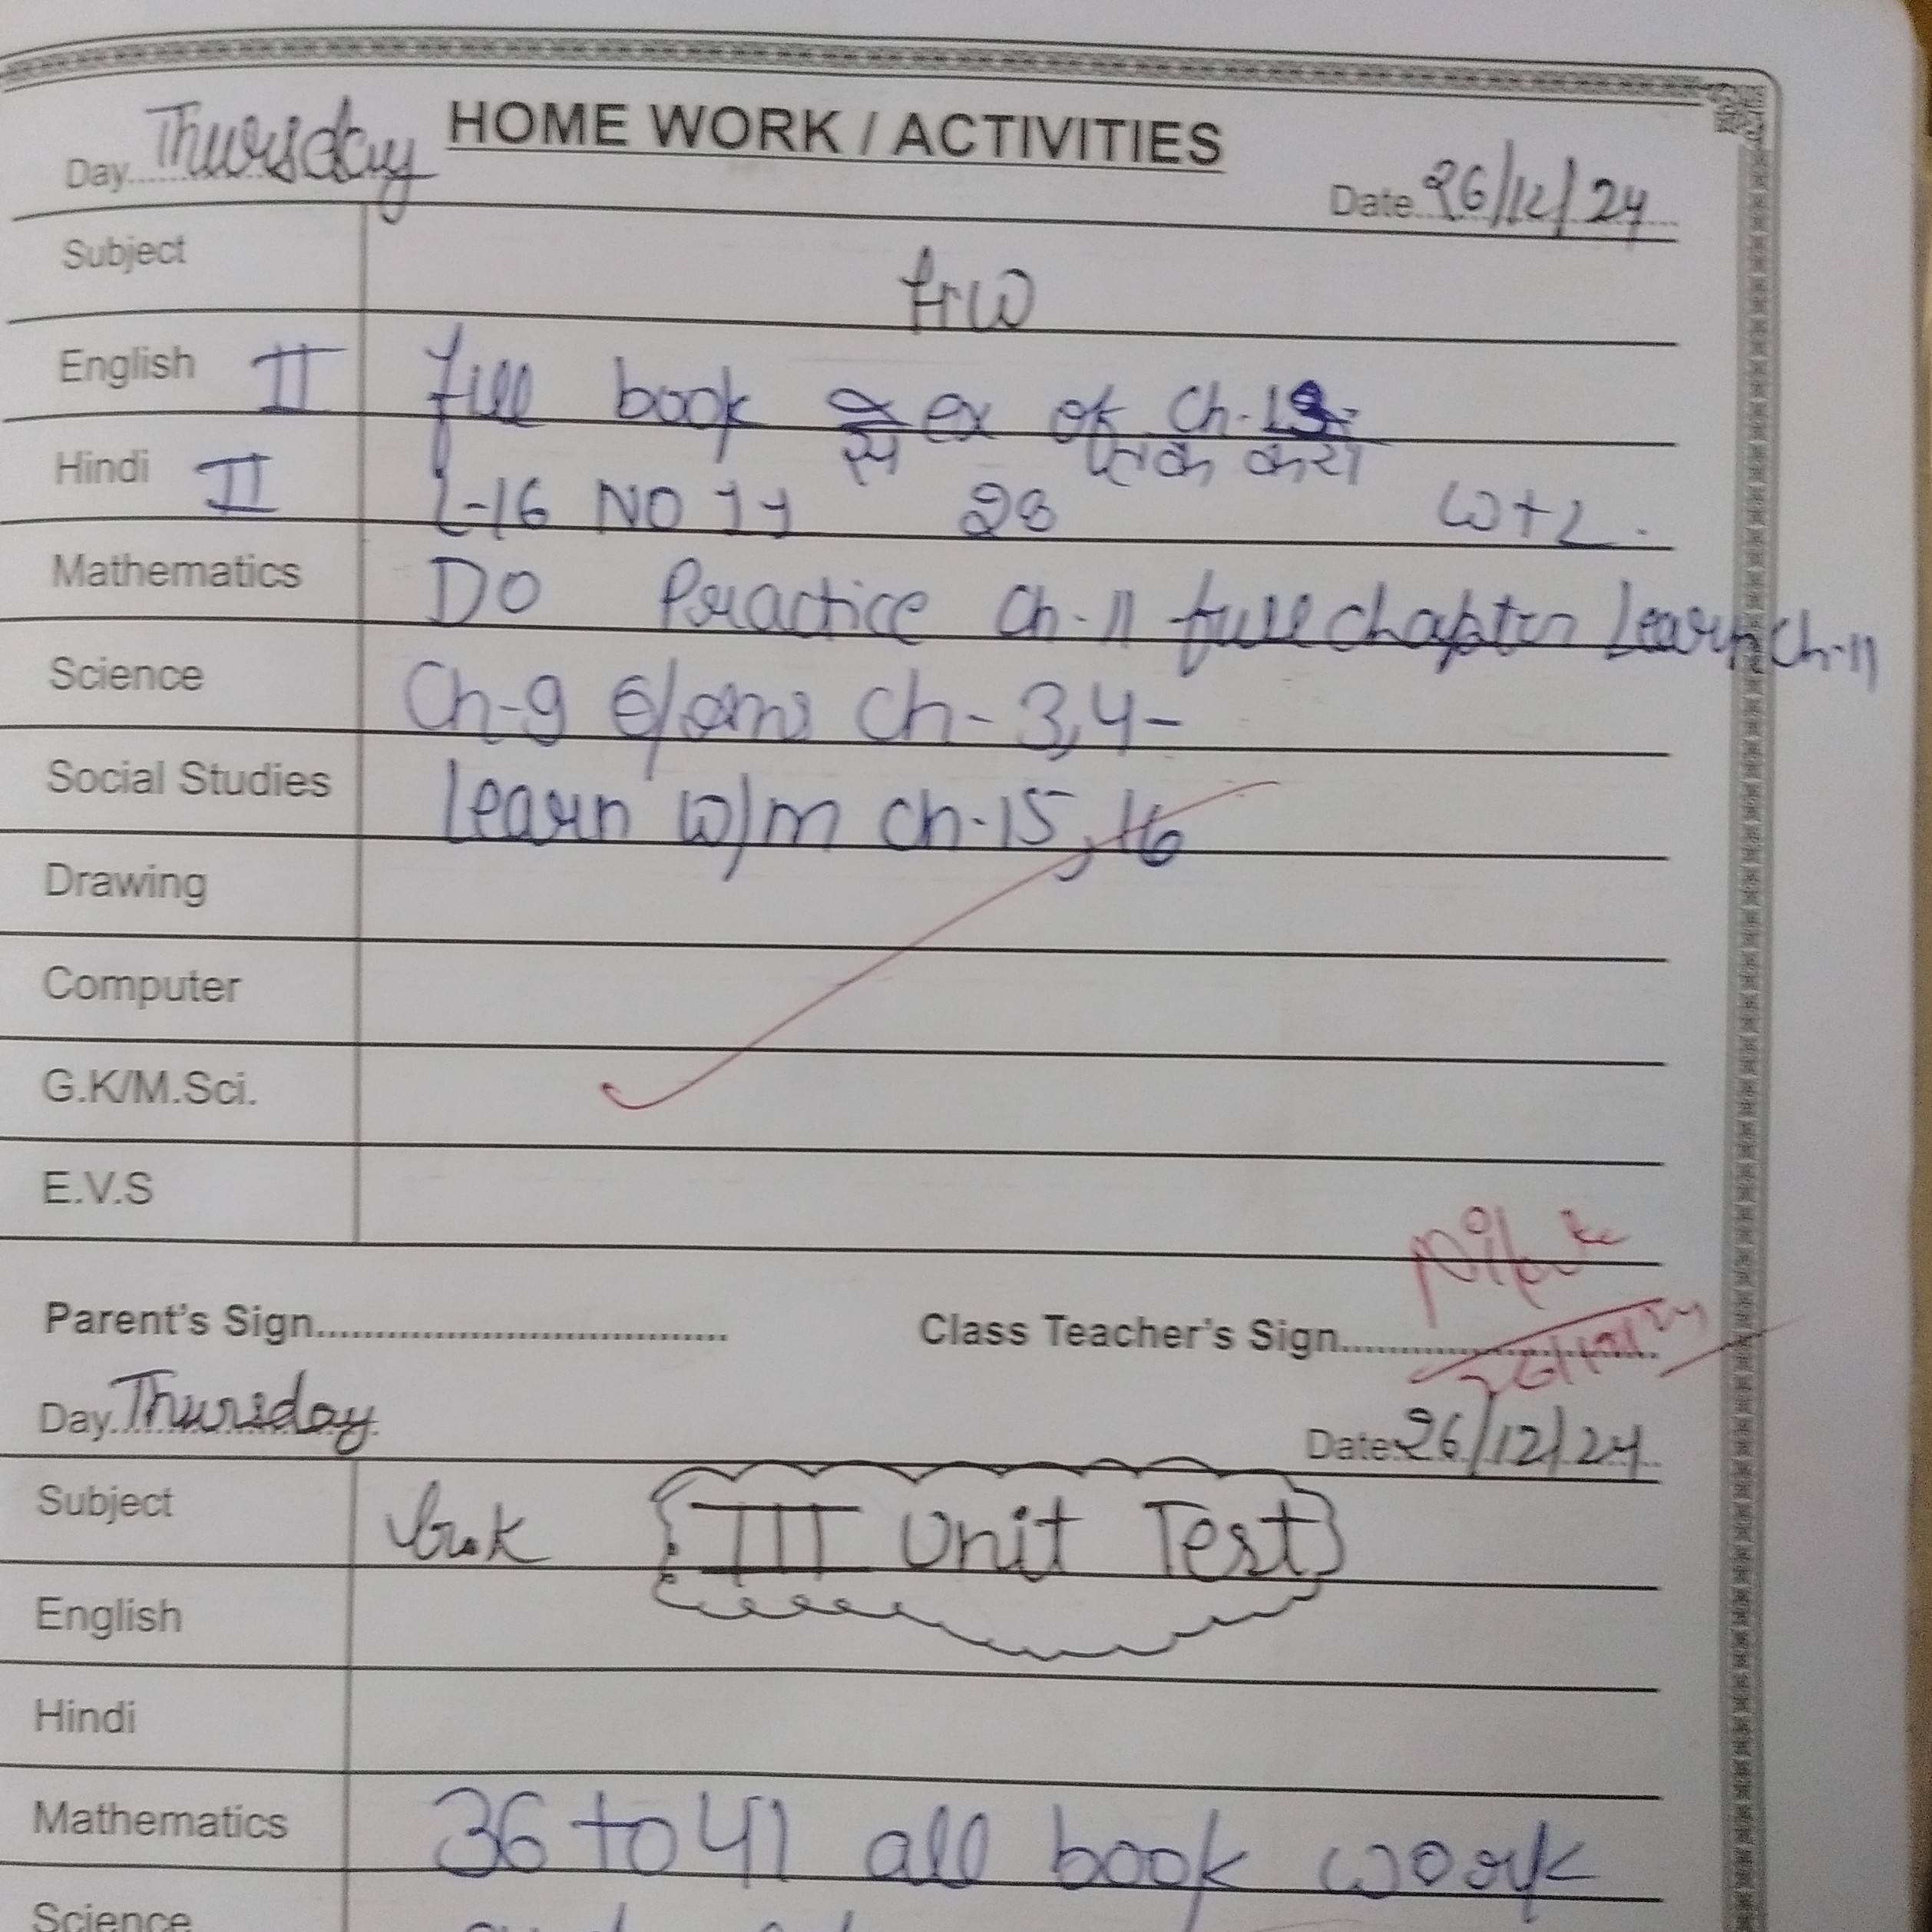 HOME WORK / ACTIVITIES
Day Thursday Date 26/12/24
Subject HW
English II fill book ex of Ch-
Hindi II L-16 NO 11 से 28 तक करो W+L.
Mathematics Do Practice Ch-11 full chapter Learn Ch-11
Science Ch-9 Ch-3,4-
Social Studies Learn w/m ch-15,16
Drawing
Computer
G.K/M.Sci.
E.V.S
Parent's Sign Class Teacher's Sign
Day Thursday Date 26/12/24
Subject G.K III Unit Test
English
Hindi
Mathematics 36 to 41 all book work
Science